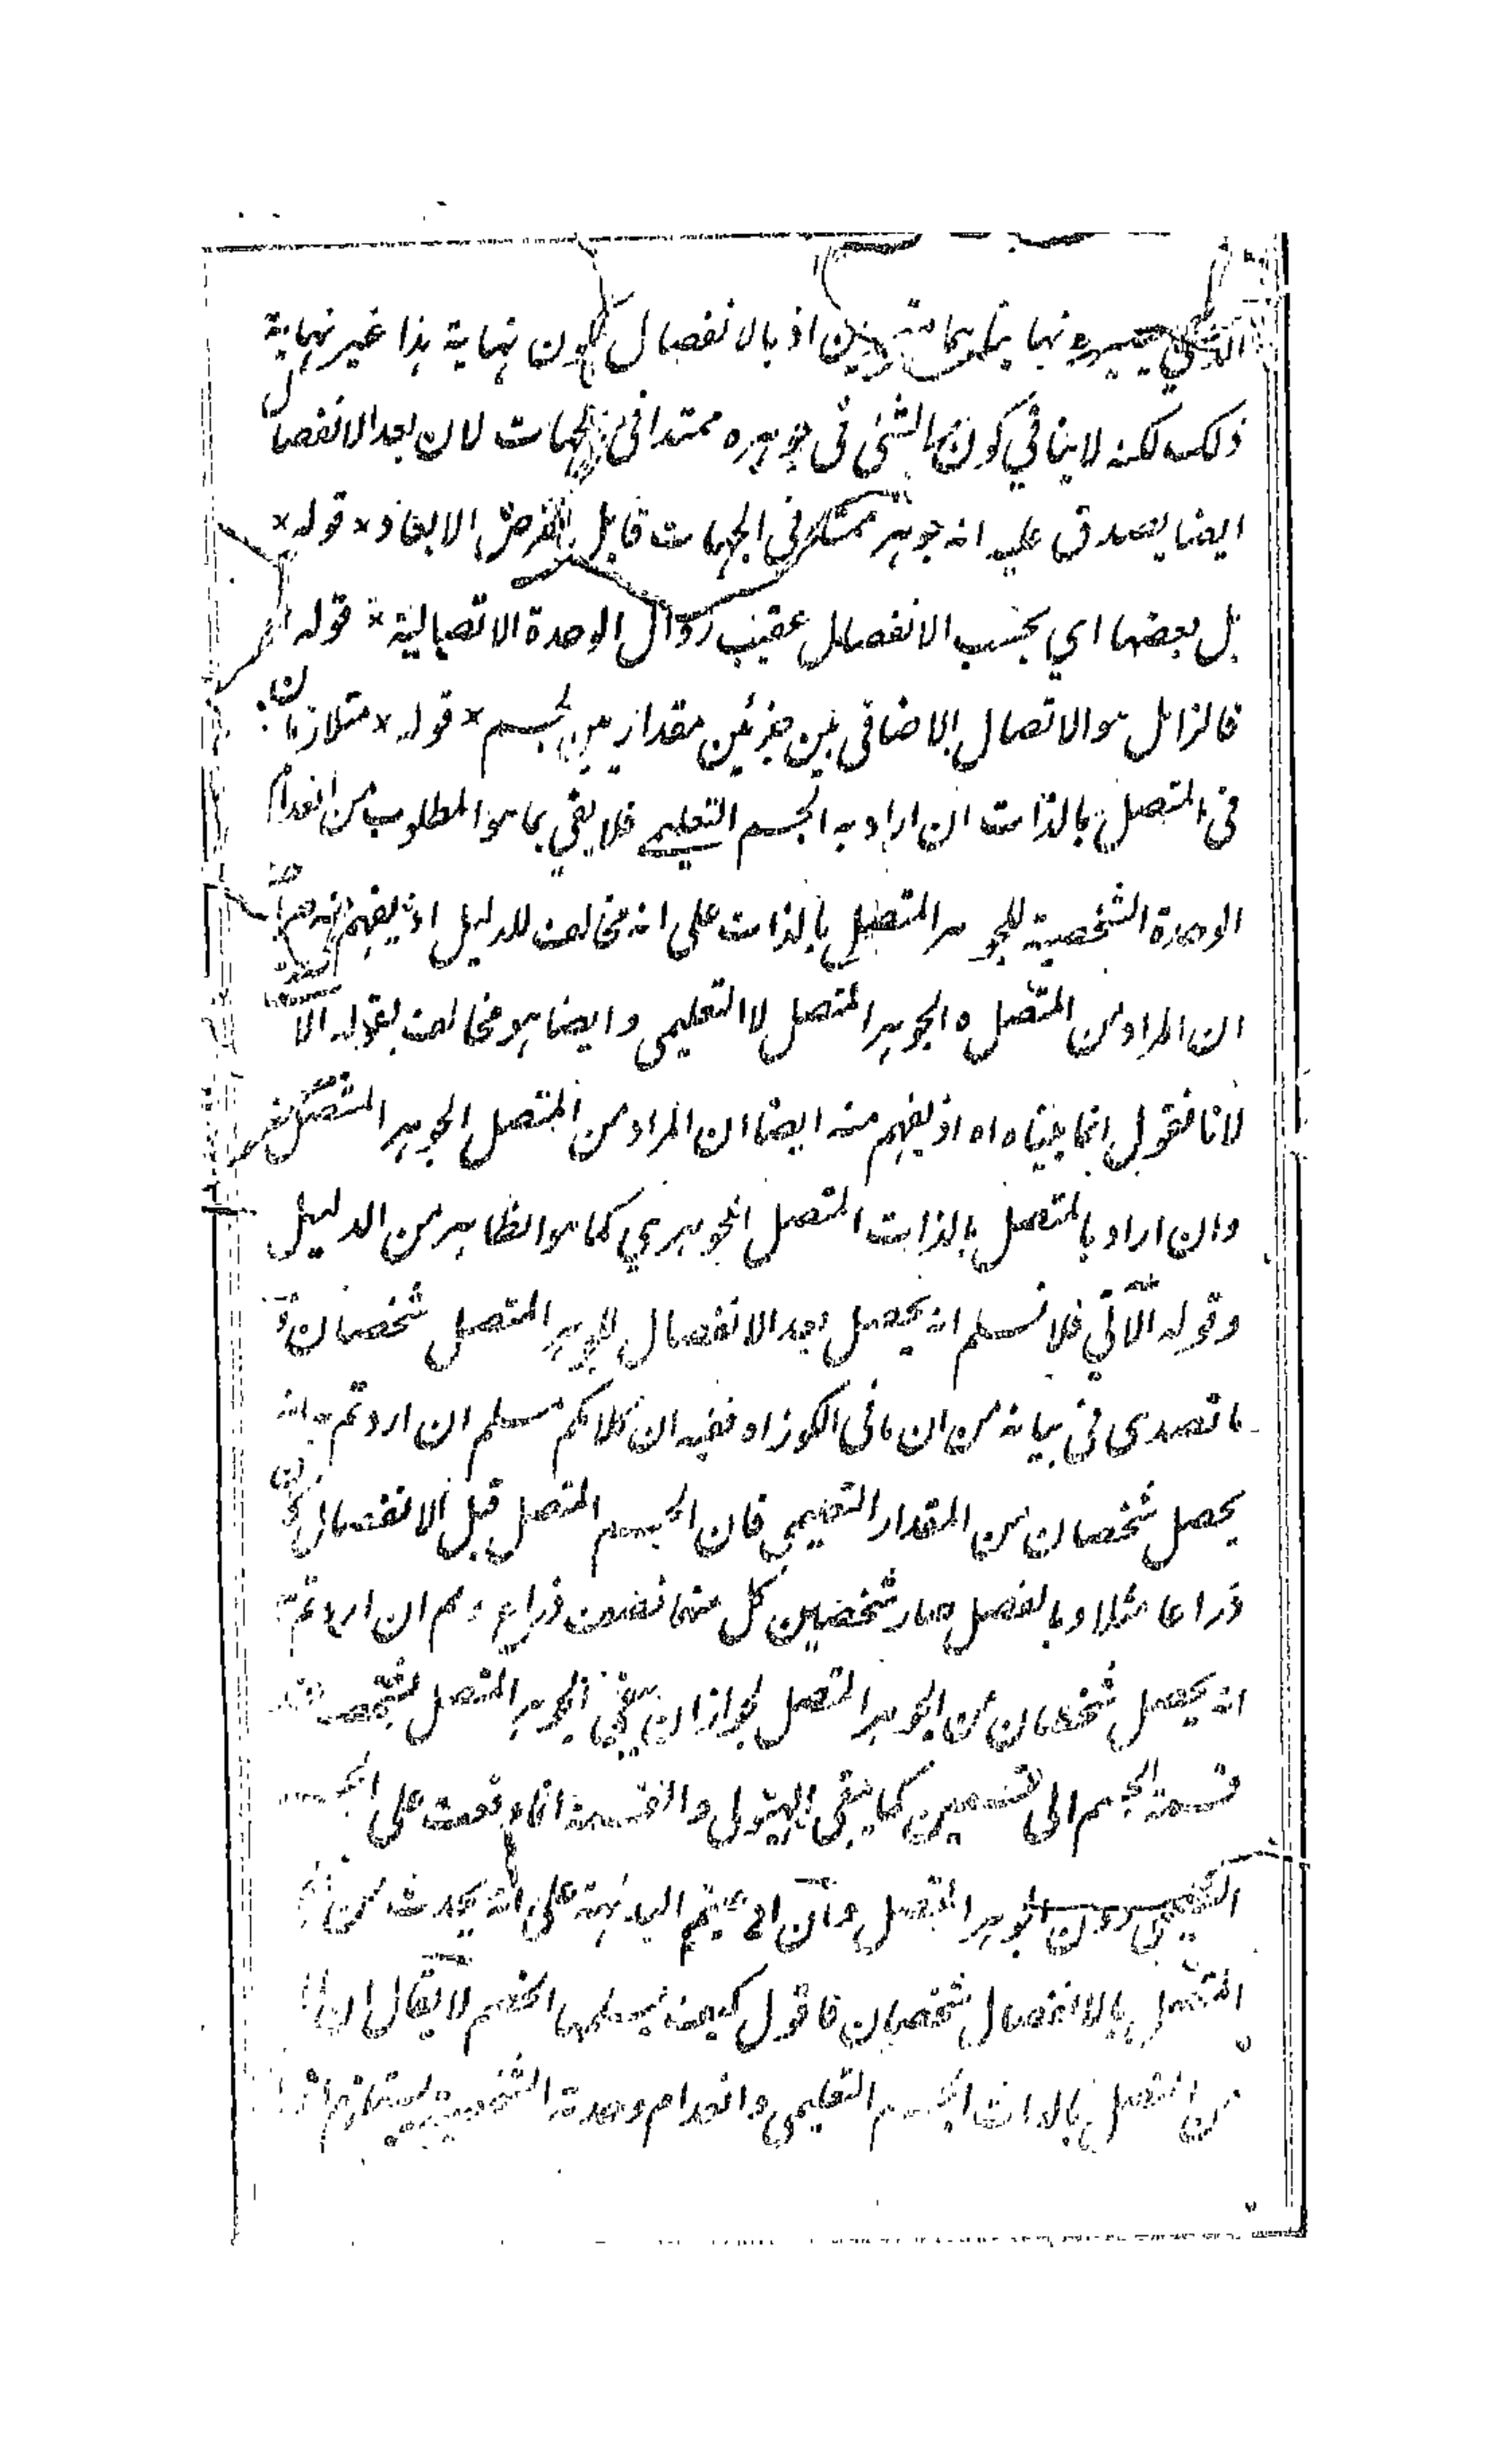 اذ بالانفصال يكون نهاية هذا غير نهاية
ذلك لكنه لا ينافي كون الشئ في جوهره ممتدا في الجهات لان بعد الانفصال
ايضا يصدق عليه انه جوهر ممتد في الجهات قابل لفرض الابعاد × قوله ×
بل بعضها اي بحسب الانفصال عقيب زوال الوحدة الاتصالية × قوله
فالزائل هو الاتصال الاضافي بين جزئين مقدارين من الجسم × قوله × متلازمان
في المتصل بالذات ان اراد به الجسم التعليمي فلا يفي بما هو المطلوب من انعدام
الوحدة الشخصية للجوهر المتصل بالذات على انه مخالف للدليل اذ يفهم
ان المراد من المتصل ه الجوهر المتصل لا التعليمي وايضا هو مخالف لقوله الا
لانا نقول انما بيناه اه اذ يفهم منه ايضا ان المراد من المتصل الجوهر المتصل
وان اراد بالمتصل بالذات المتصل الجوهري كما هو الظاهر من الدليل
وقوله الآتي فلا نسلم انه يحصل بعد الانفصال للجوهر المتصل شخصان و
ما تصدى في بيانه من ان ما في الكوز اه ففيه ان كلامكم مسلم ان اردتم به انه
يحصل شخصان من المقدار التعليمي فان الجسم المتصل قبل الانفصال كان
ذراعا مثلا وبالفصل صار شخصين كل منهما نصف ذراع وهم ان اردتم
انه يحصل شخصان من الجوهر المتصل لجواز ان يبقى الجوهر المتصل بشخصه
قسمة الجسم الى قسمين كما يبقى الهيولى والقسمة انما وقعت على الجسم
التعليمي دون الجوهر المتصل وان ادعيتم البديهة على انه يحدث من
المتصل بالانفصال شخصان فاقول كيف يسلمها الخصم لا يقال ان
من المتصل بالذات الجسم التعليمي وانعدام وحدته الشخصية يستلزم